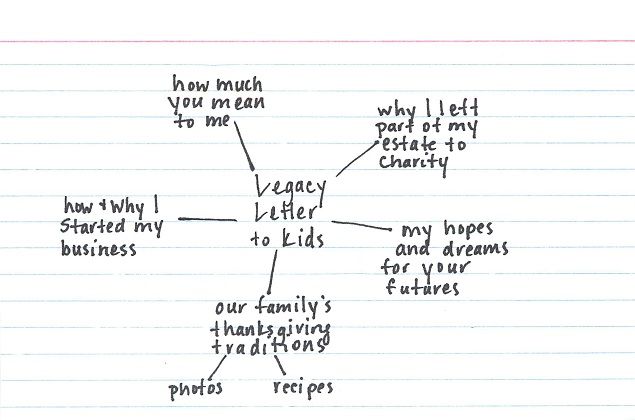 how much
you mean
to me
why I left
part of my
estate to
charity
Legacy
Letter
to kids
how + why I
started my
business
my hopes
and dreams
for your
futures
our family's
thanksgiving
traditions
photos
recipes